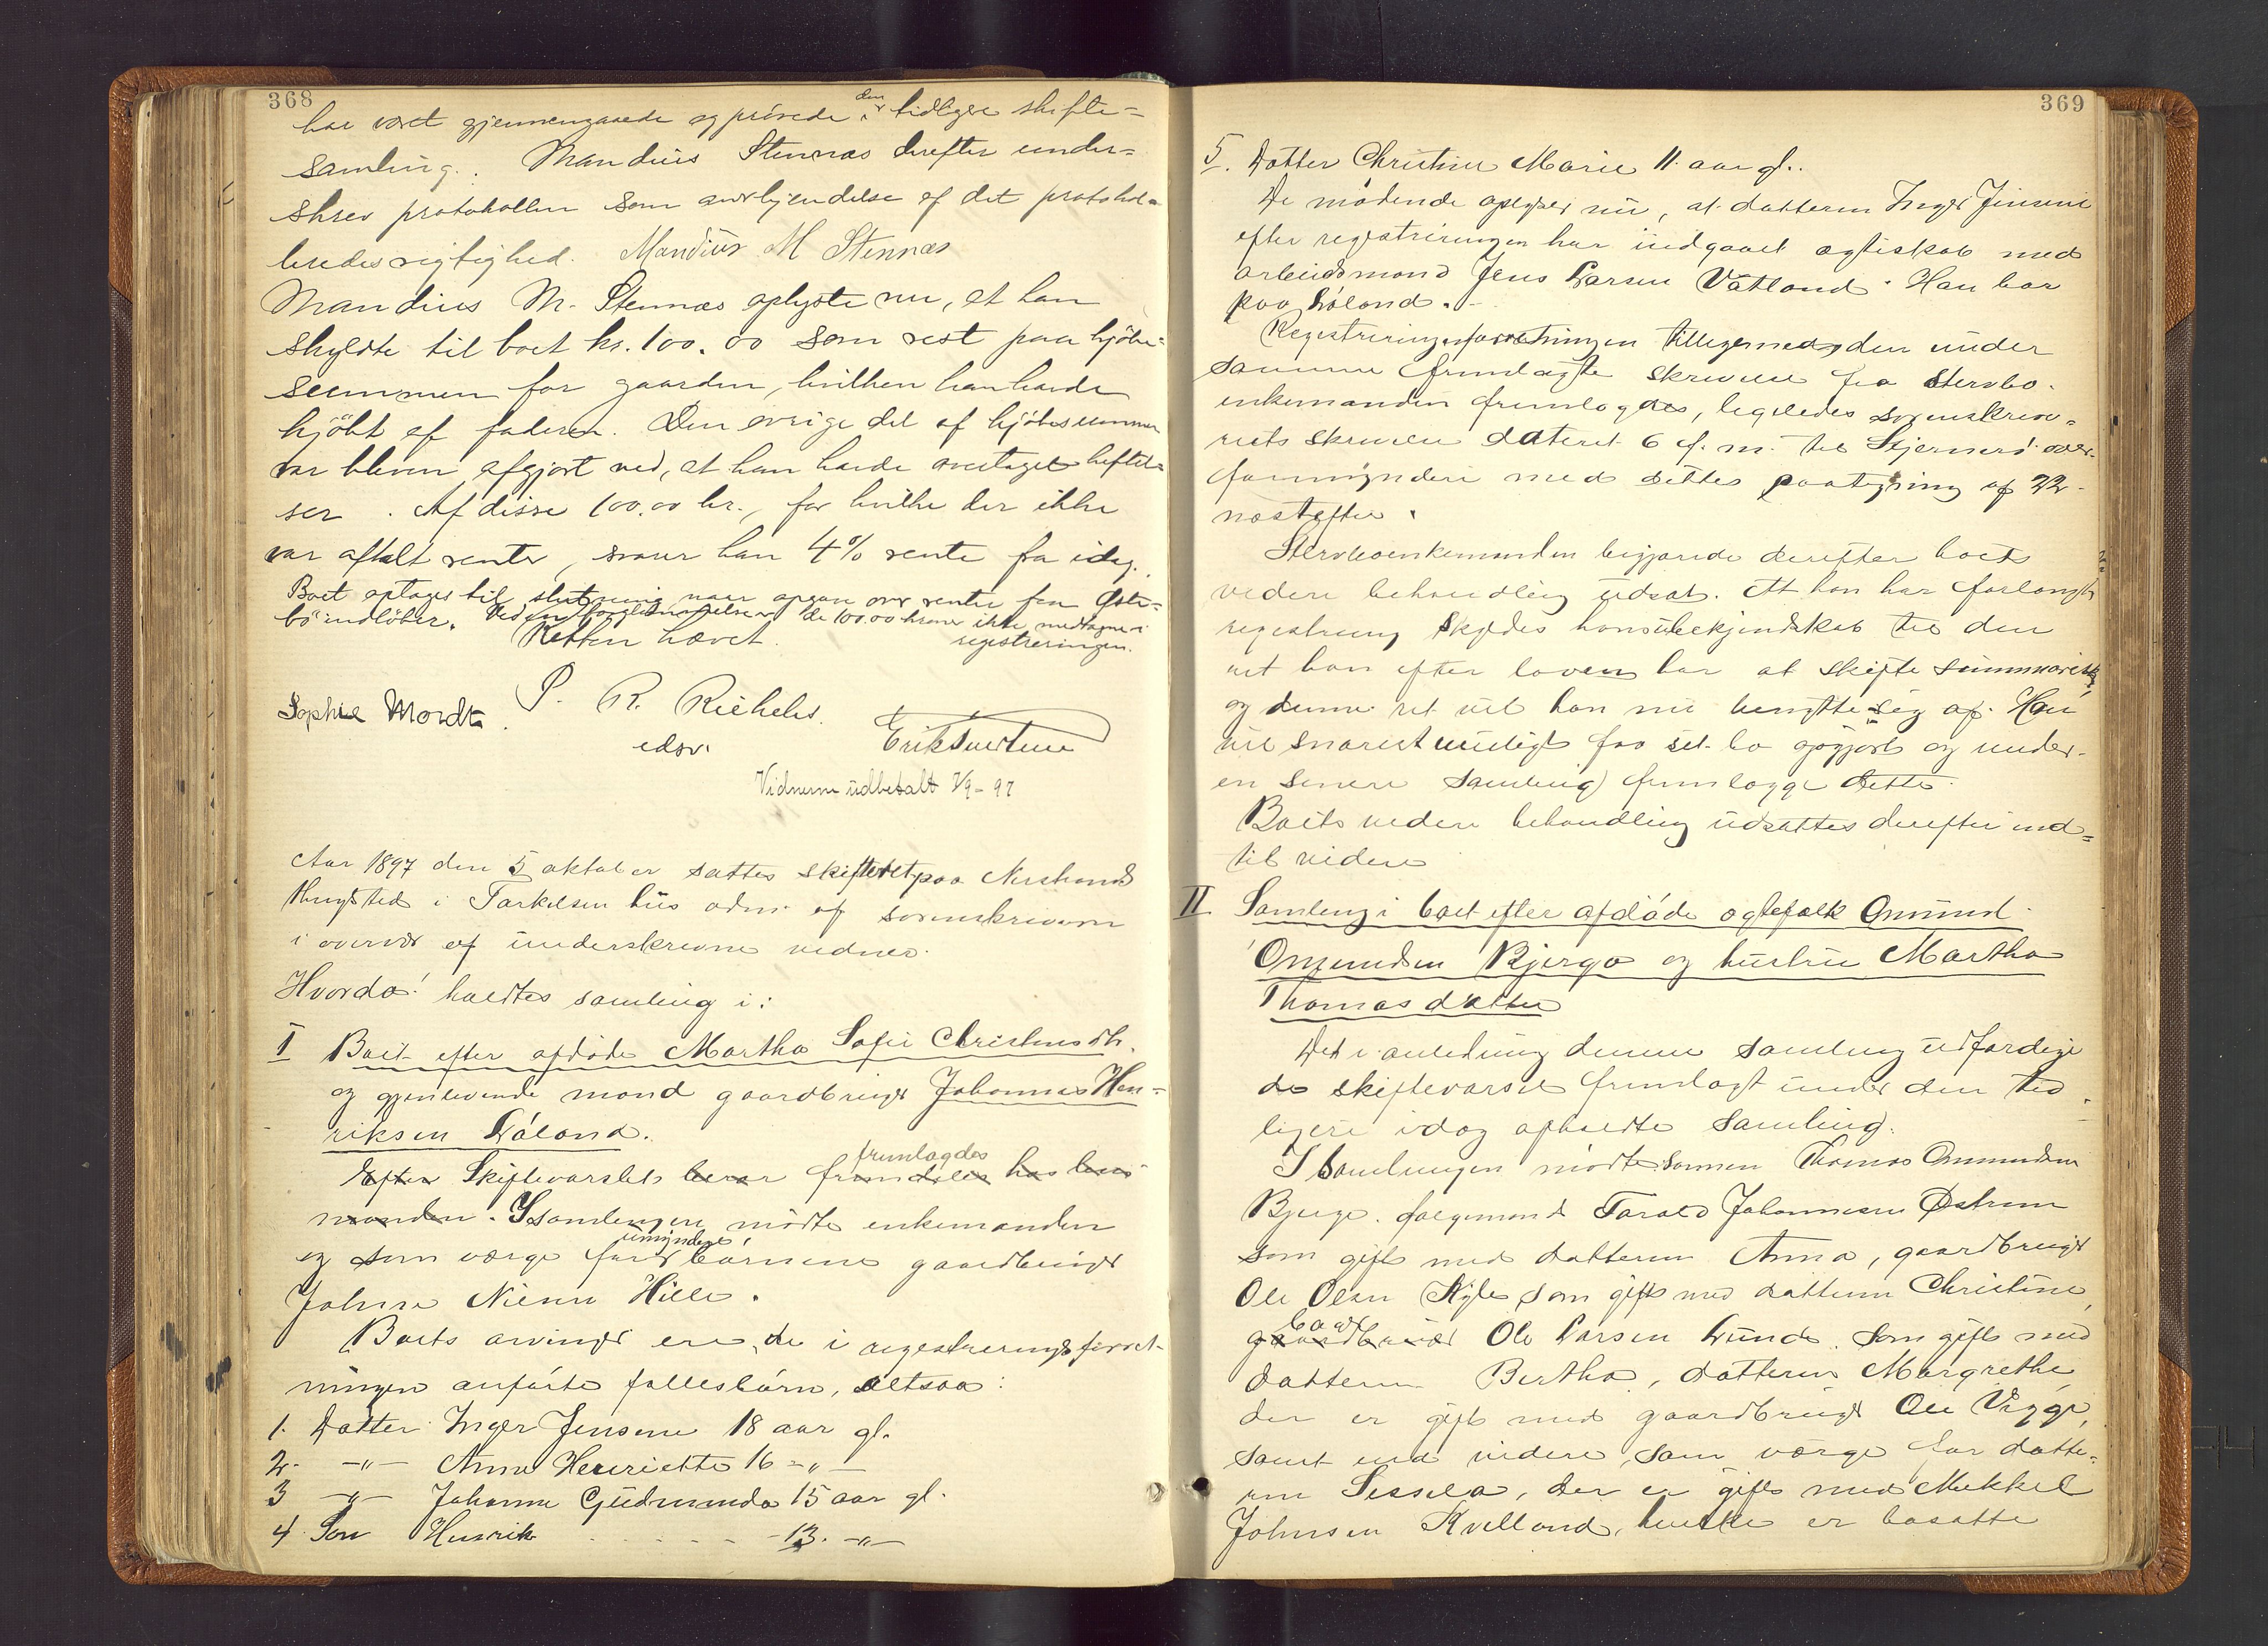 368
har været gjennemgaaede og prövede i den tidligere skifte=
samling. Mandius Stennæs derefter under=
skrev protokollen som anerkjendelse af det protokol=
leredes rigtighed. Mandius M Stennæs
Mandius M. Stennæs oplyste nu, at han
skyldte til boet kr. 100.00 som rest paa kjöbe=
summen for gaarden, hvilken han havde
kjöbt af faderen. Den övrige del af kjöbesummen
var bleven afgjort ved, at han havde overtaget heftel=
ser. Af disse 100,00 kr., for hvilke der ikke
var aftalt renter, svarer han 4% rente fra idag.
Boet optages til slutning naar opgave over renter fra Öste=
bö indlöber. Ved de 100.00 kroner ikke medtagne i
registreringen.
Retten hævet.
P. R. Richels.
edsv.
Sophie Mordt. Erik Svertene
Vidnerne udbetalt 7/9-97
Aar 1897 den 5 oktober sattes skifteret paa Nerstrands
thingsted i Torkelsens hus adm. af sorenskriveren
i overvær af underskrevne vidner.
Hvorda! holdtes samling i:
I Boet efter afdöde Martha Sofie Christensdtr.
og gjenlevende mand gaardbruger Johannes Hen=
riksen Löland.
Efter Skiftevarslets bevar fremdeles fremlagdes hos lens
manden. I samlingen mödte enkemanden
og som værge for de umyndige börnene gaardbruger
Johnse Nienn Hille.
Boets arvinger ere de i registreringsforret-
ningen anförte fællesbörn, altsaa:
1. Datter Inger Jensene 18 aar gl.
2. -"- Anna Henriette 16 -"-
3 -"- Johanne Gudmunda 15 aar gl.
4. Sön Henrik - - - - - 13. -"-
369
5. Datter Christine Marie 11. aar gl..
De mödende oplyser nu, at datteren Inger Jensene
efter registreringen har indgaaet ægteskab med
arbeidsmand Jens Larsen Vatland. Han bor
paa Löland.
Registreringsforretningen tilligemed den under
samme fremlagte skrivelse fra stervbo-
enkemanden fremlagdes, ligeledes sorenskrive=
riets skrivelse dateret 6 f. m. til Skjernerö over-
formynderi med dettes paategning af 22-
næstefter.
Stervboenkemanden begjærede derefter boets
videre behandling udsat. At han har forlangt
registrering skyldes hans ubekjendskab til den
ret han efter loven har at skifte summarisk,
og denne ret vil han nu benytte sig af. Han
vil snarest muligt faa sit bo opgjort og under
en senere samling fremlægge dette.
Boets videre behandling udsattes derefter ind=
til videre
II Samling i boet efter afdöde ægtefolk Omund
Omundsen Bjerga og hustru Martha
Thomasdatter
Det i anledning denne samling udfærdige
de skiftevarsel fremlagt under den tid
ligere idag afholdte samling.
I Samlingen mödte sönnen Thomas Omundsen
Bjerge. Torald Johannesen Östrem
som gift med datteren Anna, gaardbruger
Ole Olsen Kyle som gift med datteren Christine,
gaardbruger Ole Larsen Lunde som gift med
datteren Bertha, datteren Margrethe
der er gift med gaardbruger Ole Vigge,
samt end videre som værge for datte-
ren Sessela, der er gift med Mikkel
Johnsen Kvelland, hvilke er bosatte